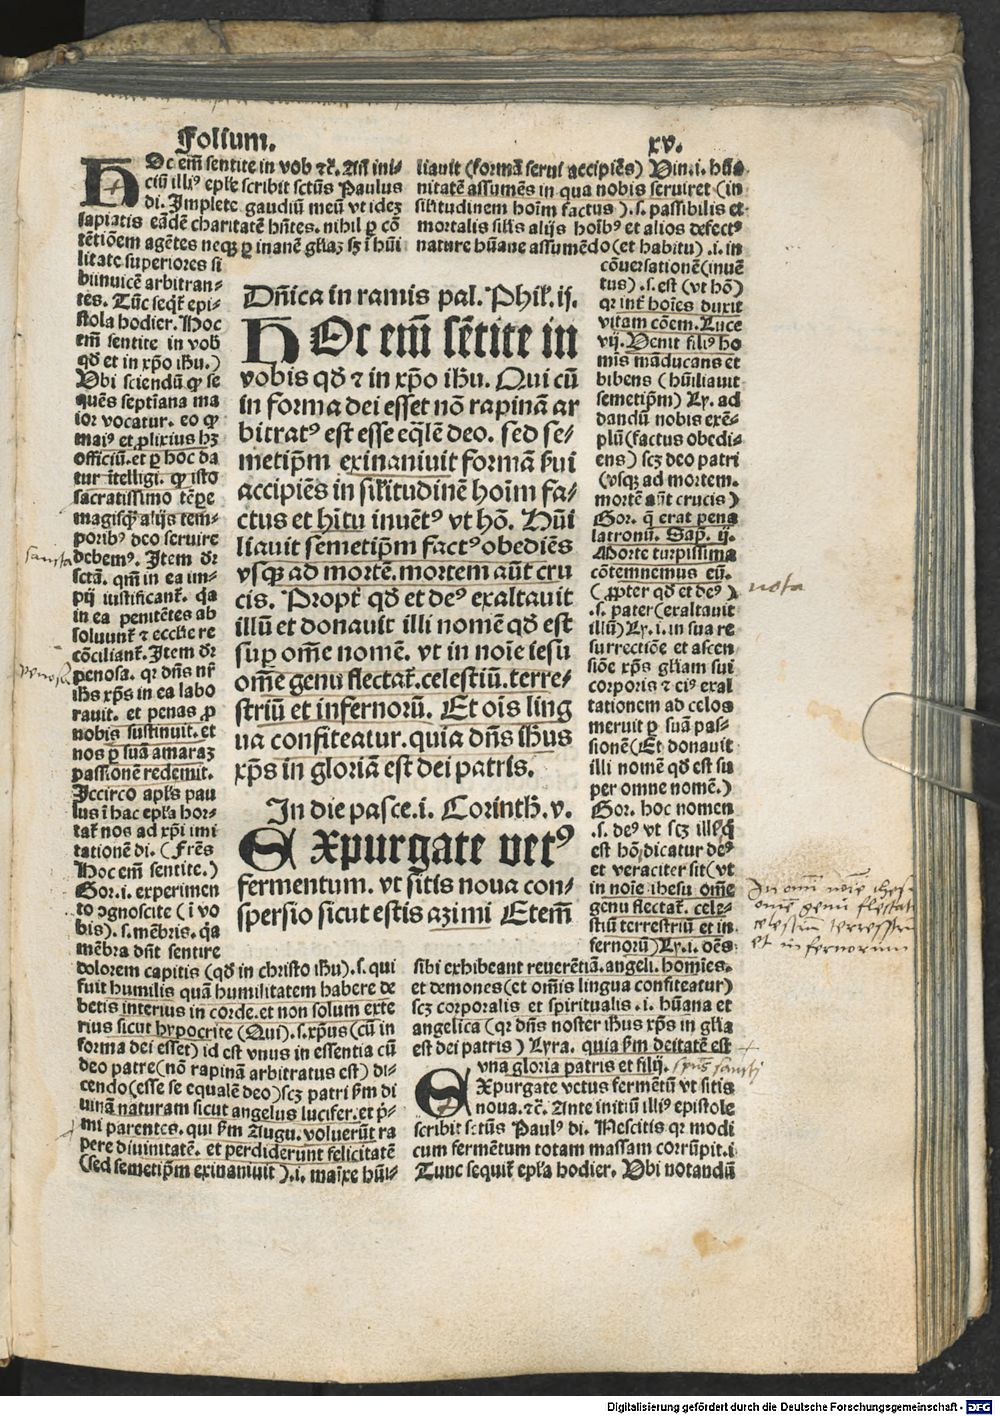 Folium. xv.
HOc em̄ sentite in vob ⁊c̄. Añ ini⸗
ciū illiꝰ epl̄e scribit sctūs Paulus
di. Implete gaudiū meū vt idez
sapiatis eādē charitatē hn̄tes. nihil ꝑ cō
tētiōem agētes neqꝫ ꝑ inanē gl̄iaꝫ sꝫ ī hūi
litate superiores si
bi inuicē arbitran⸗
tes. Tūc seqt̄ epi⸗
stola hodier. Hoc
em̄ sentite in vob
qd̄ et in xp̄o ihū.)
Ubi sciendū ꝙ se
quēs septīana ma
ior vocatur. eo ꝙ
maiꝰ et ꝓlixius hꝫ
officiū. et ꝑ hoc da
tur ītelligi. ꝙ isto
sacratissimo tēꝑe
magisqꝫ̄ alijs tem⸗
poribꝰ deo seruire
debemꝰ. Item dr̄
sctā. qm̄ in ea im⸗
pij iustificant̄. q̄a
in ea penitētes ab
soluunt̄ ⁊ ecclīe re
cōciliant̄. Item dr̄
penosa. qr dn̄s nr̄
ihs xp̄s in ea labo
rauit. et penas ꝓ
nobis sustinuit. et
nos ꝑ suā amaraꝫ
passionē redemit.
Iccirco apl̄s pau
lus ī hac epl̄a hor⸗
tat̄ nos ad xp̄i imi
tationē di. (Fr̄es
Hoc em̄ sentite.)
Gor. i. experimen
to ꝯgnoscite (i vo
bis). s. mēbris. q̄a
mēbra dn̄t sentire
dolorem capitis (qd̄ in christo ihū). s. qui
fuit humilis quā humilitatem habere de
betis interius in corde. et non solum exte
rius sicut hypocrite (Qui). s. xp̄us (cū in
forma dei esset) id est vnus in essentia cū
deo patre (nō rapinā arbitratus est) di⸗
cendo (esse se equalē deo) scꝫ patri fm̄ di
uinā naturam sicut angelus lucifer. et p̄⸗
mi parentes. qui fm̄ Augu. voluerūt ra
pere diuinitatē. et perdiderunt felicitatē
(sed semetip̄m exinaniuit). i. maīxe hūi⸗
Dn̄ica in ramis pal. Phil̄. ij.
HOc em̄ sētite in
vobis qd̄ ⁊ in xp̄o ihū. Qui cū
in forma dei esset nō rapinā ar
bitratꝰ est esse eq̄lē deo. sed se⸗
metip̄m exinaniuit formā ẜui
accipiēs in sil̄itudinē hoīm fa⸗
ctus et hītu inuētꝰ vt hō. Hūi
liauit semetip̄m factꝰ obediēs
vsqꝫ ad mortē. mortem aūt cru
cis. Propt̄ qd̄ et deꝰ exaltauit
illū et donauit illi nomē qd̄ est
suꝑ om̄e nomē. vt in noīe iesu
om̄e genu flectat̄. celestiū. terre⸗
striū et infernorū. Et oīs ling
ua confiteatur. quia dn̄s ihūs
xp̄s in gloriā est dei patris.
In die pasce. i. Corinth̄. v.
EXpurgate vetꝰ
fermentum. vt sitis noua con⸗
spersio sicut estis azimi Etem̄
liauit (formā serui accipiēs) Vin. i. hūa
nitatē assumēs in qua nobis seruiret (in
sil̄itudinem hoīm factus). s. passibilis et
mortalis sil̄is alijs hoībꝰ et alios defectꝰ
nature hūane assumēdo (et habitu). i. in
cōuersationē (inuē
tus). s. est (vt hō)
qr int̄ hoīes duxit
vitam cōem. Luce
vij. Venit filiꝰ ho
mis māducans et
bibens (hūiliauit
semetip̄m) Ly. ad
dandū nobis exē⸗
plū (factus obedi⸗
ens) scꝫ deo patri
(vsqꝫ ad mortem.
mortē aūt crucis)
Gor. q̄ erat pena
latronū. Sap. ij.
Morte turpissima
cōtemnemus eū.
(Ꝓpter qd̄ et deꝰ)
.s. pater (exaltauit
illū) Ly. i. in sua re
surrectiōe et ascen
siōe xp̄s gl̄iam sui
corporis ⁊ eiꝰ exal
tationem ad celos
meruit ꝑ suā pas⸗
sionē (Et donauit
illi nomē qd̄ est su
per omne nomē.)
Gor. hoc nomen
.s. deꝰ vt scꝫ ille qͥ
est hō dicatur deꝰ
et veraciter sit (vt
in noīe ihesu om̄e
genu flectat̄. cele⸗
stiū terrestriū et in
fernorū) Ly. i. oēs
sibi exhibeant reuerētiā. angeli. homīes.
et demones (et om̄is lingua confiteatur)
scꝫ corporalis et spiritualis. i. hūana et
angelica (qr dn̄s noster ihūs xp̄s in gl̄ia
est dei patris) Lyra. quia fm̄ deitatē est
vna gloria patris et filij. spūs sancti
EXpurgate vetus fermētū vt sitis
noua. ⁊c̄. Ante initiū illiꝰ epistole
scribit sctūs Paulꝰ di. Nescitis qr modi
cum fermētum totam massam corrūpit. i
Tunc sequit̄ epl̄a hodier. Ubi notandū
sancta
penosa
nota
In om̄i noīe ihesu
om̄e genu flectat
celestium terrestrium
et infernorum
Digitalisierung gefördert durch die Deutsche Forschungsgemeinschaft - DFG